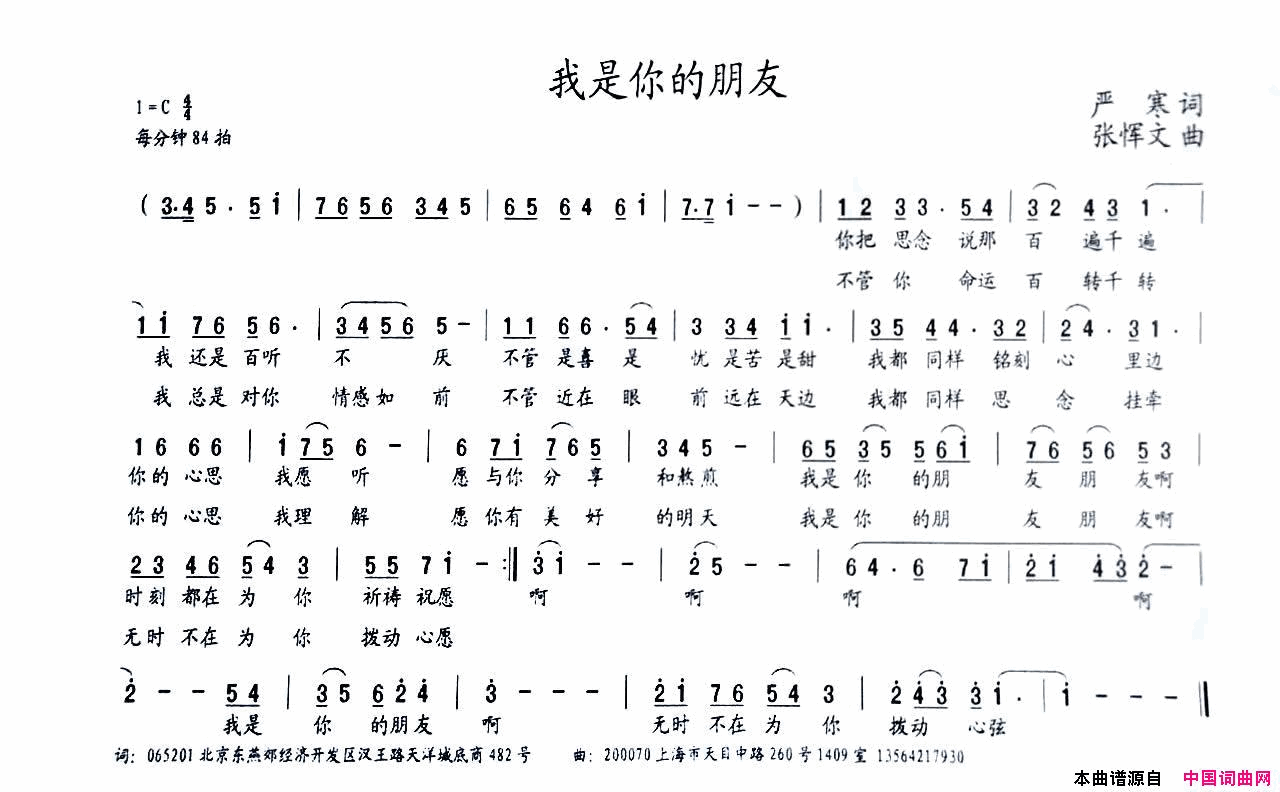 我是你的朋友
1=C 4/4
每分钟84拍
严 寒 词
张恽文 曲
( 3·4 5· 5 i | 7 6 5 6 3 4 5 | 6 5 6 4 6 i | 7·7 i - - ) | 1 2 3 3· 5 4 | 3 2 4 3 1·
你把 思念 说那 百 遍千 遍
不管 你 命运 百 转千 转
1 i 7 6 5 6· | 3 4 5 6 5 - | 1 1 6 6· 5 4 | 3 3 4 i i· | 3 5 4 4· 3 2 | 2 4· 3 1·
我 还是 百听 不 厌 不管 是喜 是 忧 是苦 是甜 我都 同样 铭刻 心 里边
我 总是 对你 情感如 前 不管 近在 眼 前 远在 天边 我都 同样 思 念 挂牵
1 6 6 6 | i 7 5 6 - | 6 7 i 7 6 5 | 3 4 5 - | 6 5 3 5 5 6 i | 7 6 5 6 5 3
你的 心思 我愿 听 愿 与你 分 享 和熬煎 我是 你 的朋 友 朋 友啊
你的 心思 我理 解 愿 你有 美 好 的明天 我是 你 的朋 友 朋 友啊
2 3 4 6 5 4 3 | 5 5 7 i - :| 3 i - - | 2 5 - - | 6 4· 6 7 i | 2 i 4 3 2 -
时刻 都在 为 你 祈祷 祝愿 啊 啊 啊 啊
无时 不在 为 你 拨动 心愿
2 - - 5 4 | 3 5 6 2 4 | 3 - - | 2 i 7 6 5 4 3 | 2 4 3 3 i· | i - - -
我是 你 的朋友 啊 无时 不在 为 你 拨动 心弦
词: 065201 北京东燕郊经济开发区汉王路天洋城底商482号 曲: 200070 上海市天目中路260号1409室 13564217930
本曲谱源自 中国词曲网